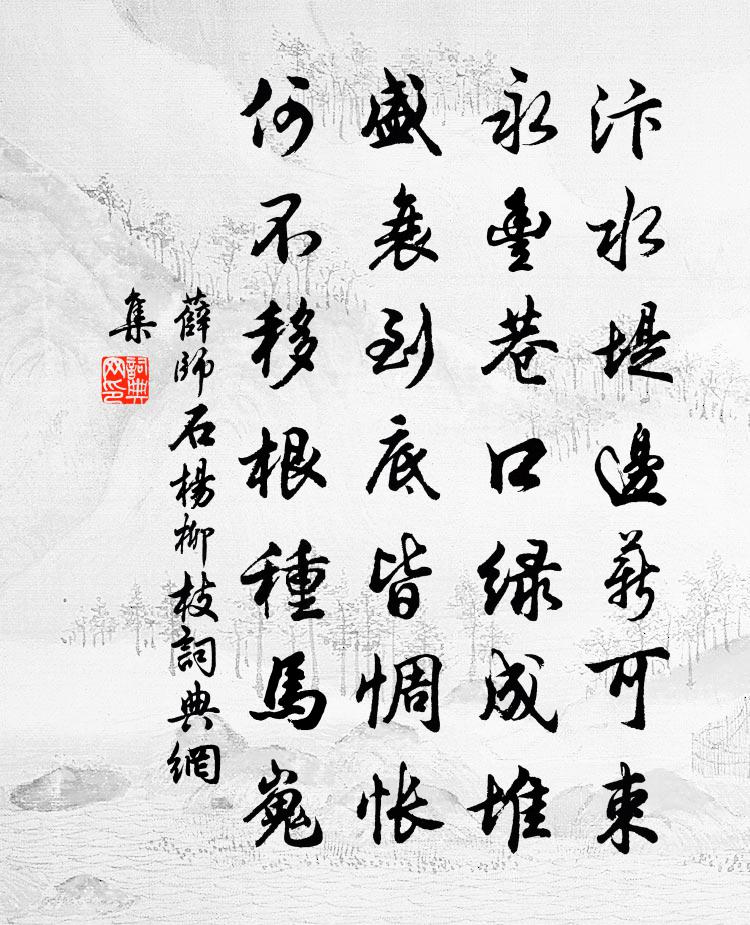 汴水堤邊薪可束
永豐巷口綠成堆
盛衰到底皆惆悵
何不移根種馬嵬
薛師石楊柳枝詞典網
集
詞典
网印